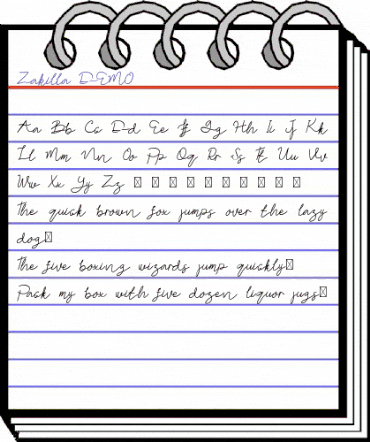 Zakilla DEMO
Aa Bb Cc Dd Ee Ff Gg Hh Ii Jj Kk
Ll Mm Nn Oo Pp Qq Rr Ss Tt Uu Vv
Ww Xx Yy Zz
The quick brown fox jumps over the lazy
dog
The five boxing wizards jump quickly
Pack my box with five dozen liquor jugs